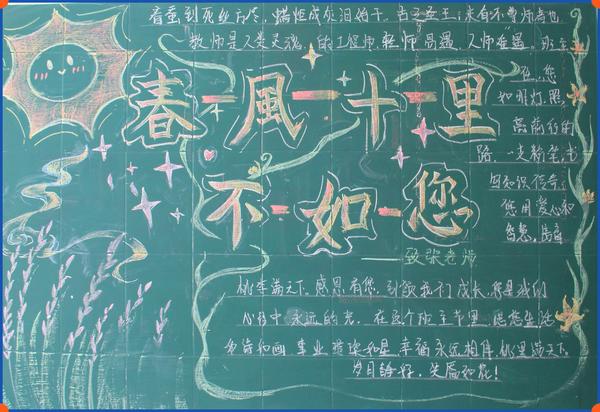 春蚕到死丝方尽，蜡炬成灰泪始干，古之圣王，未有不尊师者也
教师是人类灵魂的工程师，经师易遇，人师难遇。
春一風一十一里
您
如明灯，照
亮前行的
路，一支粉笔，书
知识传奇，
您用爱心和
智慧，
不-如-您
——致张老师
桃李满天下，感恩有您，引领我们成长，您是我们
心目中永远的光，在这个教师节里，愿您生活
如诗如画，事业，幸福永远相伴，桃李满天下
岁月静好，笑靥如花！